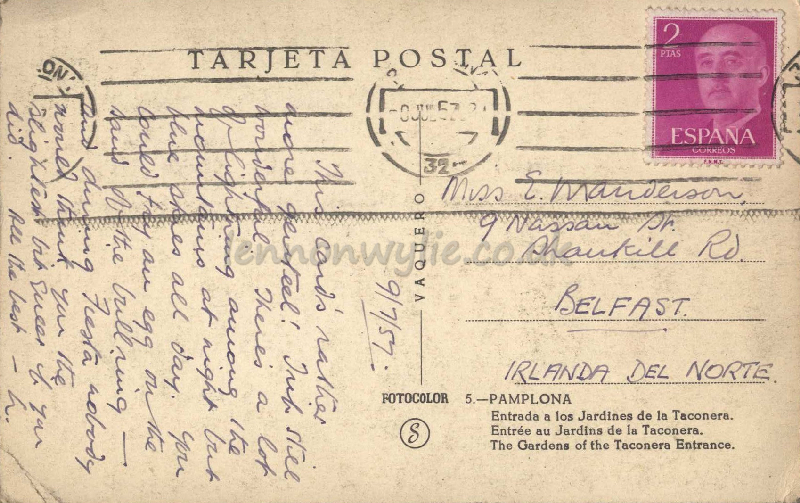 TARJETA POSTAL
2
PTAS
ESPAÑA
CORREOS
F.N.M.T.
JUL 57
32
This card's rather
more genteel! Trip still
wonderful. There's a lot
of lightning among the
mountains at night but
blue skies all day. You
could fry an egg on the
sand of the bullring —
and during Fiesta nobody
would think you the
slightest bit queer if you
did. All the best — L.
9/7/57.
Miss E. Manderson,
9 Nassau St.
Shankill Rd.
BELFAST.
IRLANDA DEL NORTE.
VAQUERO
FOTOCOLOR
8
5.—PAMPLONA
Entrada a los Jardines de la Taconera.
Entrée au Jardins de la Taconera.
The Gardens of the Taconera Entrance.
lennonwylie.co.uk